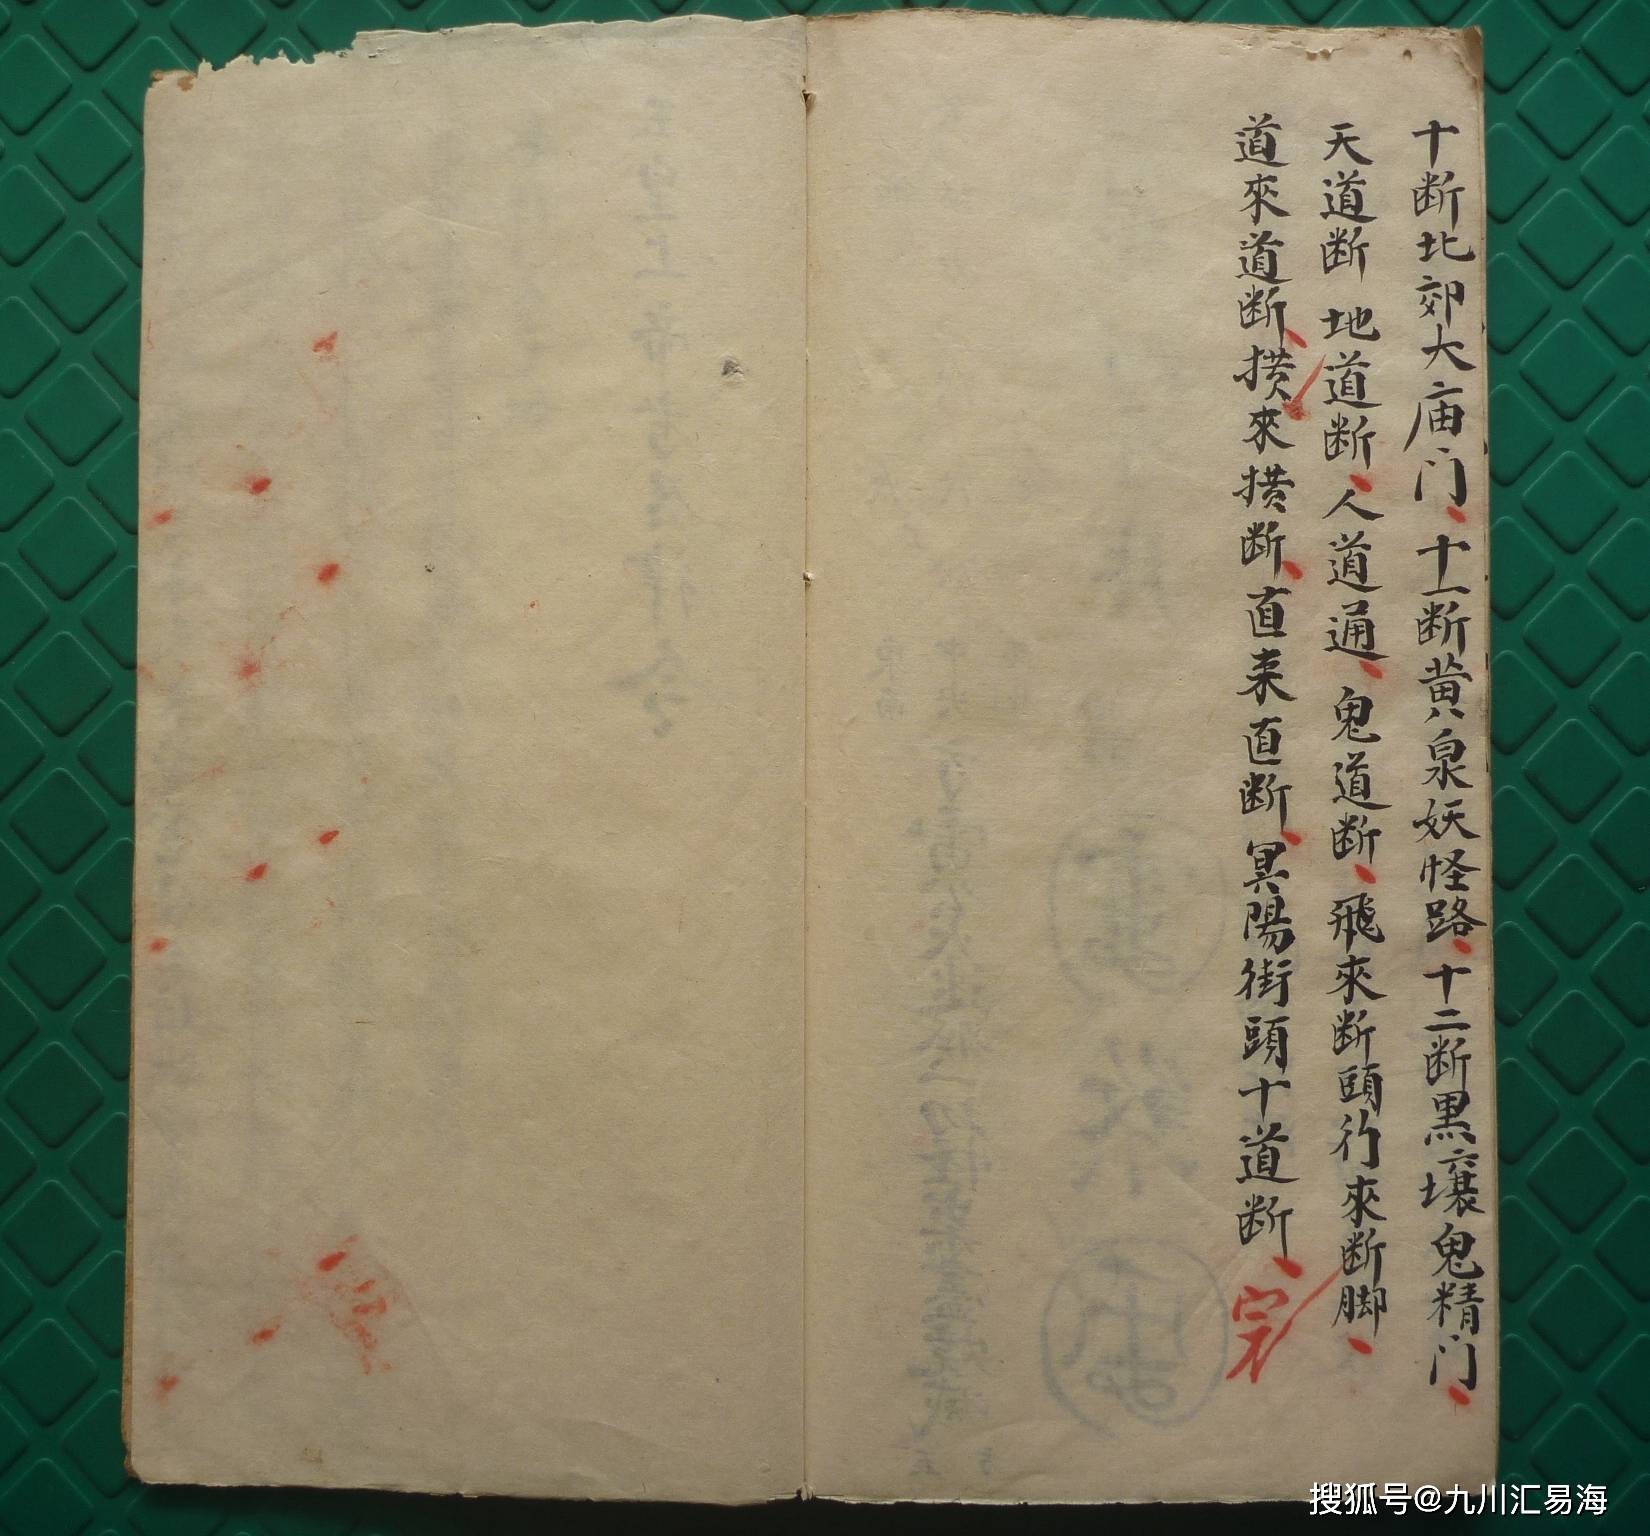 十断北郊大庙门、十一断黄泉妖怪路、十二断黒壤鬼精门、
天道断 地道断、人道通、鬼道断、飛來断頭行來断脚、
道來道断、撗來撗断、直来直断、冥陽街頭十道断、完
搜狐号@九川汇易海